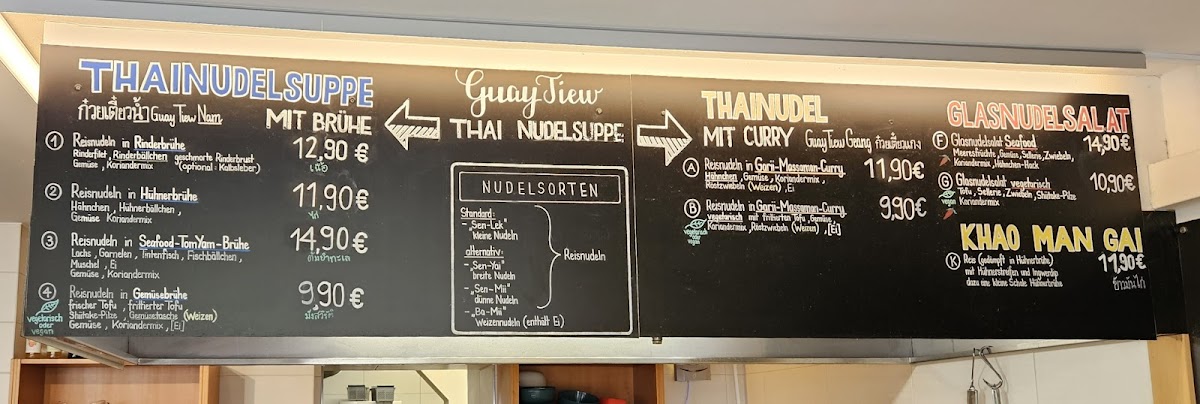 THAINUDELSUPPE
ก๋วยเตี๋ยวน้ำ Guay Tiew Nam MIT BRÜHE
1 Reisnudeln in Rinderbrühe 12,90 €
Rinderfilet, Rinderbällchen, geschmorte Rinderbrust
Gemüse, Koriandermix (optional: Kalbsleber)
เนื้อ
2 Reisnudeln in Hühnerbrühe 11,90 €
Hähnchen, Hühnerbällchen,
Gemüse Koriandermix
ไก่
3 Reisnudeln in Seafood-TomYam-Brühe 14,90 €
Lachs, Garnelen, Tintenfisch, Fischbällchen,
Muschel, Ei
Gemüse, Koriandermix
ต้มยำทะเล
4 Reisnudeln in Gemüsebrühe 9,90 €
frischer Tofu, fritierter Tofu
Shiitake-Pilze, Gemüsetasche (Weizen)
Gemüse, Koriandermix, [Ei]
มังสวิรัติ
vegetarisch
oder
vegan
Guay Tiew
THAI NUDELSUPPE
NUDELSORTEN
Standard:
- „Sen-Lek"
kleine Nudeln
alternativ:
- „Sen-Yai"
breite Nudeln
- „Sen-Mii"
dünne Nudeln
Reisnudeln
- „Ba-Mii"
Weizennudeln (enthält Ei)
THAINUDEL
MIT CURRY Guay Tiew Geang ก๋วยเตี๋ยวแกง
A Reisnudeln in Garii-Massaman-Curry 11,90€
Hähnchen, Gemüse, Koriandermix,
Röstzwiebeln (Weizen), Ei
B Reisnudeln in Garii-Massaman-Curry 9,90€
vegetarisch mit fritierten Tofu, Gemüse,
Koriandermix, Röstzwiebeln (Weizen), [Ei]
vegetarisch
oder
vegan
GLASNUDELSALAT
F Glasnudelsalat Seafood 14,90€
Meeresfrüchte, Gemüse, Sellerie, Zwiebeln,
Koriandermix, Hühnchen-Hack
G Glasnudelsalat vegetarisch 10,90€
Tofu, Sellerie, Zwiebeln, Shiitake-Pilze
Koriandermix
KHAO MAN GAI
K Reis (gedämpft in Hühnerbrühe) 11,90€
mit Hühnerstreifen und Ingwerdip
dazu eine kleine Schale Hühnerbrühe
ข้าวมันไก่